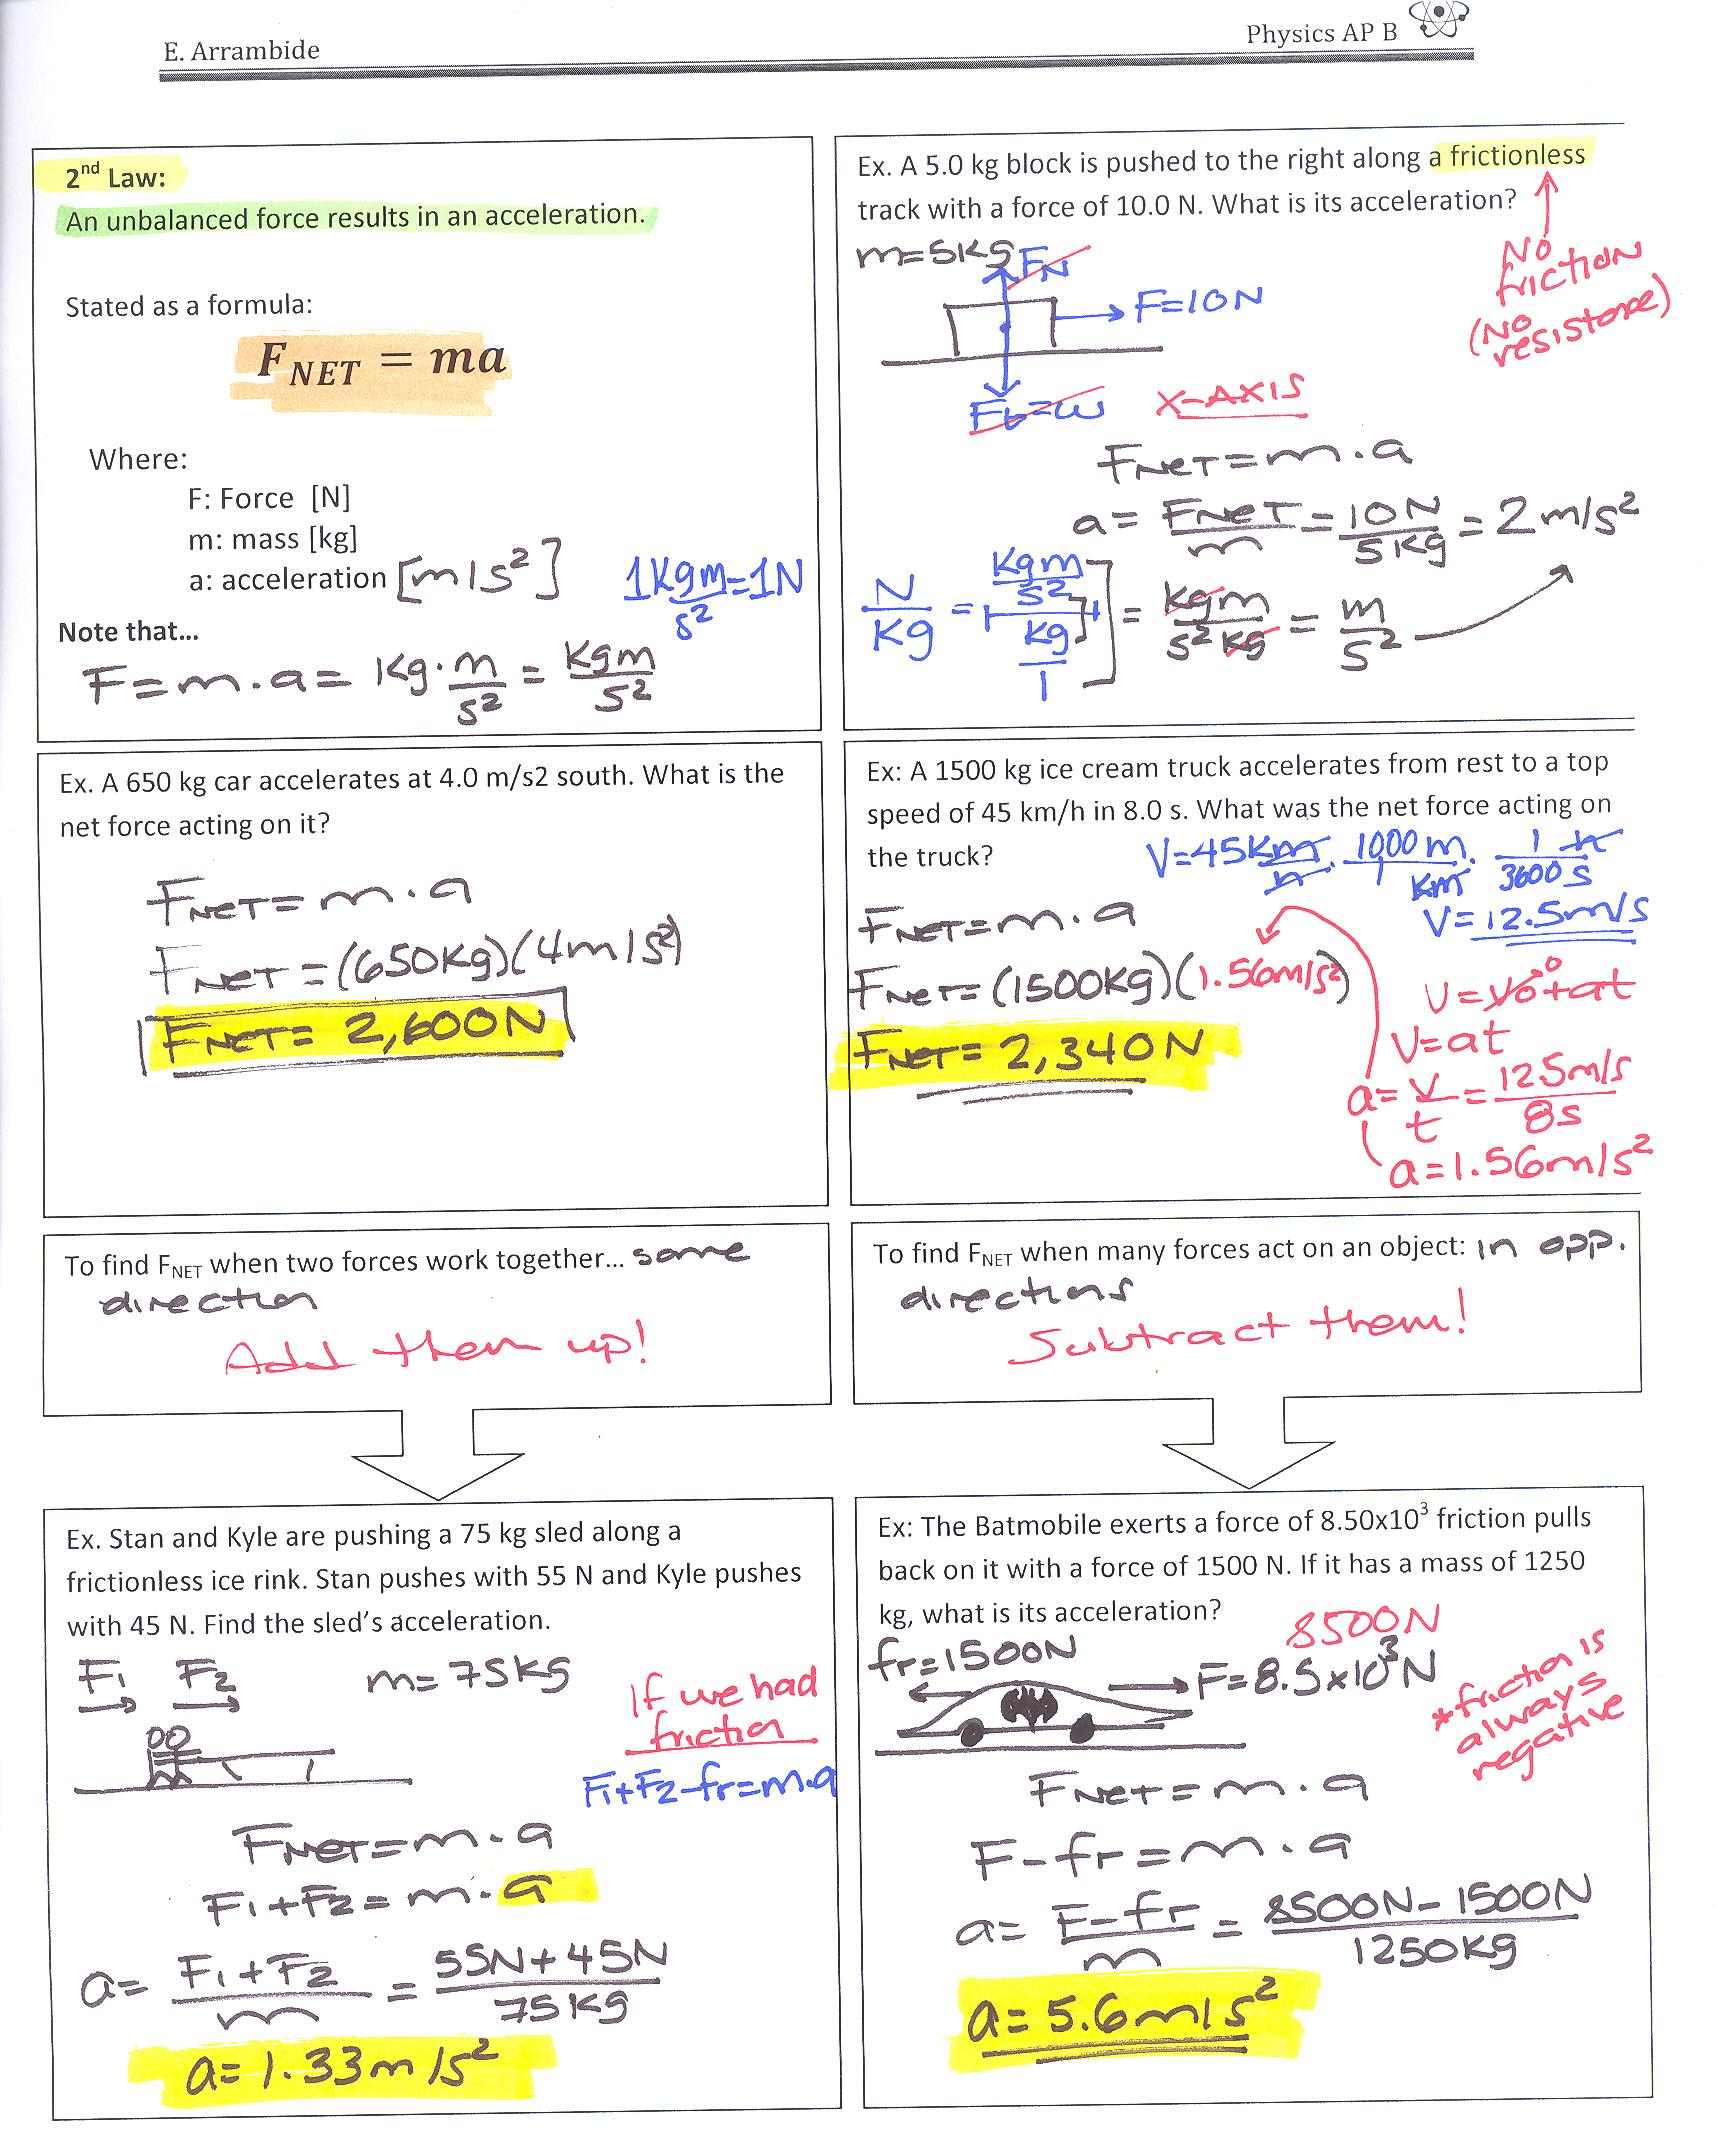 E. Arrambide
Physics AP B
2nd Law:
An unbalanced force results in an acceleration.
Stated as a formula:
F_NET = ma
Where:
F: Force [N]
m: mass [kg]
a: acceleration [m/s²]
1 Kgm/s² = 1N
Note that...
F = m.a = Kg.m/s² = Kgm/s²
Ex. A 5.0 kg block is pushed to the right along a frictionless
track with a force of 10.0 N. What is its acceleration?
NO
friction
(NO
resistance)
m=5Kg
FN
F=10N
Ft=w
X-AXIS
FNET=m.a
a= FNET/m = 10N/5Kg = 2m/s²
N/Kg = Kgm/s² / Kg/1 = Kgm/s²Kg = m/s²
Ex. A 650 kg car accelerates at 4.0 m/s2 south. What is the
net force acting on it?
FNET=m.a
FNET=(650Kg)(4m/s²)
FNET= 2,600N
Ex: A 1500 kg ice cream truck accelerates from rest to a top
speed of 45 km/h in 8.0 s. What was the net force acting on
the truck?
V=45Km/h . 1000m/1Km . 1h/3600s
V=12.5m/s
FNET=m.a
FNET=(1500Kg)(1.56m/s²)
FNET= 2,340N
V=Vo+at
0
V=at
a=V/t=12.5m/s/8s
a=1.56m/s²
To find FNET when two forces work together... same
direction
Add them up!
To find FNET when many forces act on an object: in opp.
directions
Subtract them!
Ex. Stan and Kyle are pushing a 75 kg sled along a
frictionless ice rink. Stan pushes with 55 N and Kyle pushes
with 45 N. Find the sled's acceleration.
F1 F2 m=75Kg
If we had
friction
F1+F2-fr=m.a
FNET=m.a
F1+F2=m.a
a= F1+F2/m = 55N+45N/75Kg
a=1.33m/s²
Ex: The Batmobile exerts a force of 8.50x10³ friction pulls
back on it with a force of 1500 N. If it has a mass of 1250
kg, what is its acceleration?
8500N
fr=1500N
F=8.5x10³N
*friction is
always
negative
FNET=m.a
F-fr=m.a
a= F-fr/m = 8500N-1500N/1250Kg
a=5.6m/s²